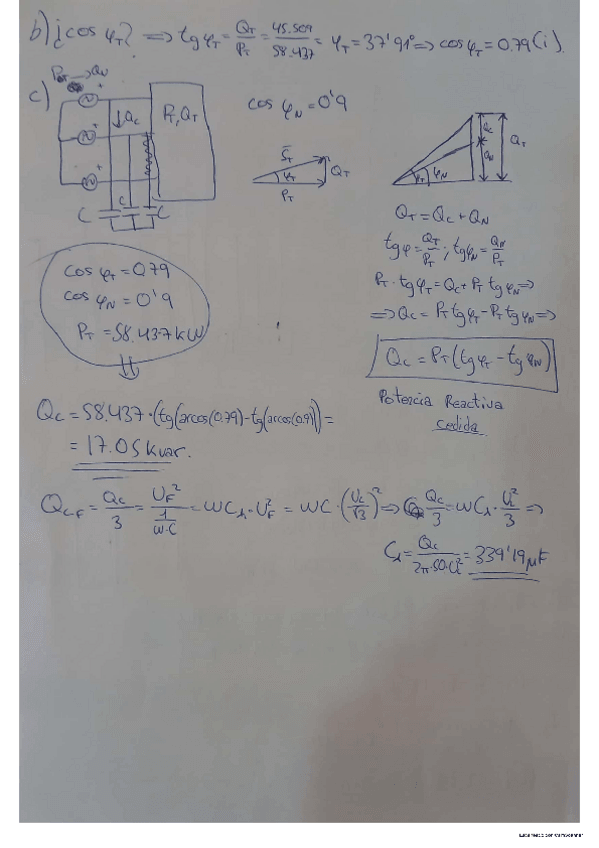 b) ¿cos φT? ⇒ tg φT = QT/PT = 45.509/58.437 = φT = 37'91° ⇒ cos φT = 0.79 (i).
c)
QN
+
+
+
↓Qc
PT, QT
C C C
cos φN = 0'9
S̄T
φT
QT
PT
φT φN
Qc
QN
QT
QT = Qc + QN
tgφ = QT/PT ; tgφN = QN/PT
PT · tgφT = Qc + PT tgφN ⇒
⇒ Qc = PT tgφT - PT tgφN ⇒
Qc = PT (tgφT - tgφN)
Potencia Reactiva
cedida
cos φT = 0.79
cos φN = 0'9
PT = 58.437 kW
⇓
Qc = 58.437 · (tg(arcos(0.79)-tg(arcos(0.9)) =
= 17.05 kvar.
QcF = Qc/3 = UF²/(1/(w·C)) = wCλ · UF² = wC · (UL/√3)² ⇒ Qc/3 = wCλ · UL²/3 ⇒
Cλ = Qc/(2π·50·UL²) = 339'19 μF